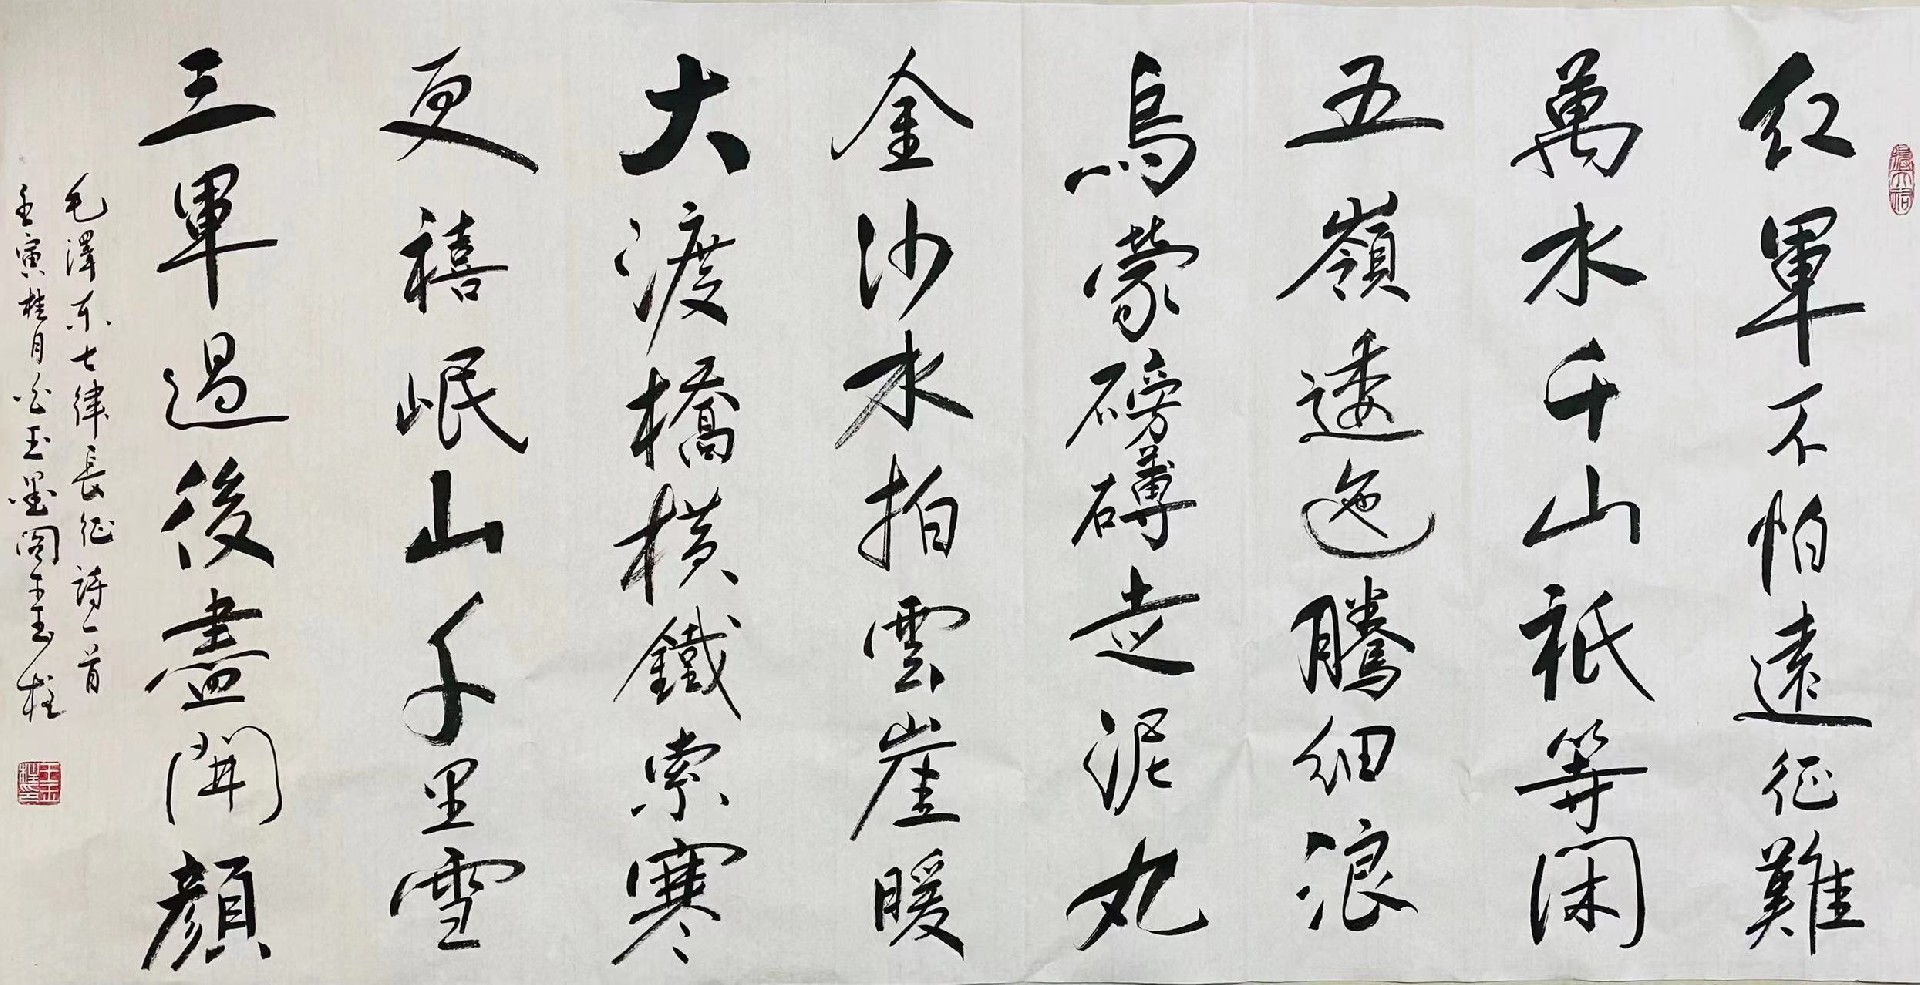 紅軍不怕遠征難
萬水千山祇等閑
五嶺逶迤騰細浪
烏蒙磅礴走泥丸
金沙水拍雲崖暖
大渡橋橫鐵索寒
更禧岷山千里雪
三軍過後盡開顏
毛澤東七律長征詩一首
壬寅桂月於玉墨閣玉柱